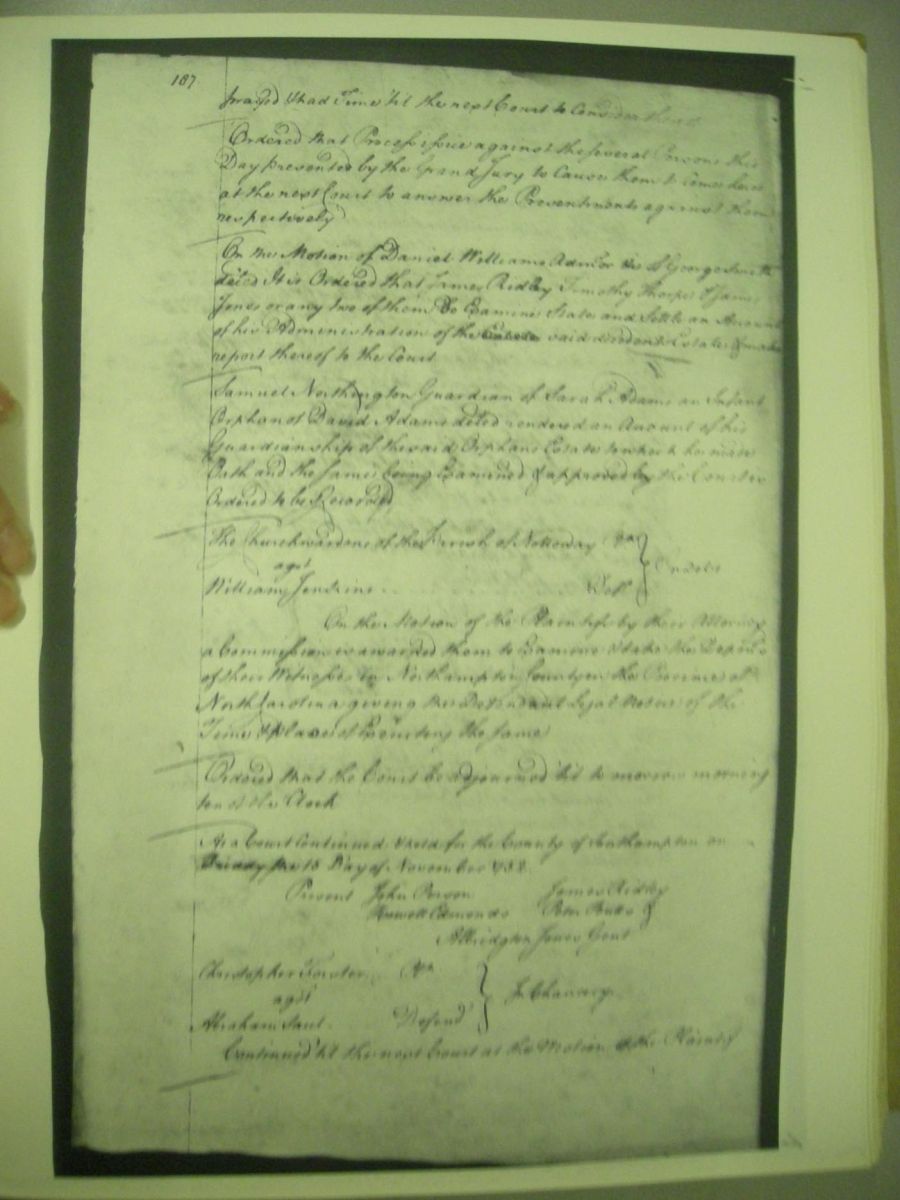 187
prayed & had Time 'til the next Court to Consider thereof
Ordered that Process issue against the several Persons this
Day presented by the Grand Jury to Cause them to come here
at the next Court to answer the Presentments against them
respectively
On the Motion of Daniel Williams Admor &c of George Smith
deced It is Ordered that James Ridley Timothy Thorpe & James
Jones or any two of them Do Examine State and Settle an Account
of his Administration of the said decedents Estate & make
report thereof to the Court
Samuel Northington Guardian of Sarah Adams an Infant
Orphan of David Adams deced rendered an Account of his
Guardianship of the said Orphans Estate to which he made
Oath and the same being Examined & approved by the Court is
Ordered to be Recorded
The Churchwardens of the Parish of Nottoway
agst
William Jenkins
On the Motion of the Plaintifs by their Attorney
a Commission is awarded them to Examine & take the
of their Witnesses in Northampton County in the Province of
North Carolina giving the Defendant Legal Notice of the
Time & place of Executing the same
Ordered that the Court be adjourned 'til to morrow morning
ten of the Clock
At a Court Continued & held for the County of Southampton on
10 Day of November
Present John Person James Ridley
Howell Edmonds Peter Butts &
Albridgton Jones Gent
Christopher Foster
agst } In Chancery
Abraham Defend
Continued 'til the next Court at the Motion of the Plaintif